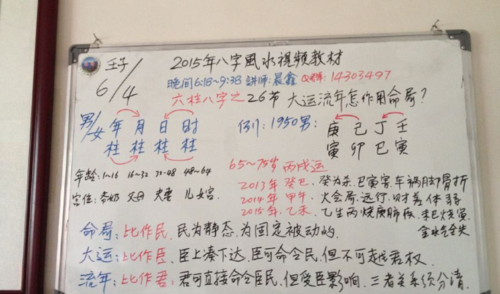 壬子
6/4
2015年八字風水視頻教材
晚间6:18~9:38 講师:晨鑫 Q号:1430349
六柱八字之26节 大运流年怎作用命局?
男/女 年 月 日 时
柱 柱 柱 柱
例1:1950男: 庚 己 丁 壬
寅 卯 巳 寅
年龄:1~16 16~32 32~48 48~64
宫位:爷奶 父母 夫妻 儿女宫
65~75岁 丙戌运
2013年 癸巳.癸为杀.巳寅害.车祸脚骨折
2014年 甲午.火会局.运行.财气体弱
2015年.乙未.乙生丙烧庚肺疾.
命局:比作民,民为静态,为固定被动的.
大运:比作臣,臣上奏下达,臣可命令民,但不可越君权.
流年:比作君:君可直接命令臣民,但受臣影响,三者关系须分清.